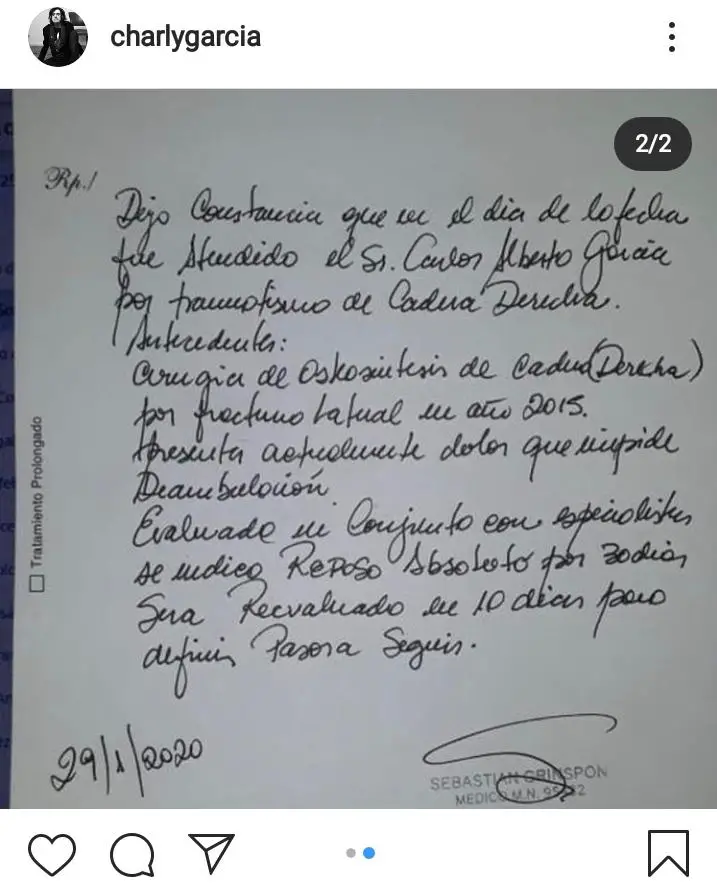 charlygarcia
2/2
Rp./
Dejo Constancia que en el dia de la fecha
fue Atendido el Sr. Carlos Alberto García
por traumatismo de Cadera Derecha.
Antecedentes:
Cirugia de Osteosintesis de Cadera (Derecha)
por fractura lateral en año 2015.
Presenta actualmente dolor que impide
Deambulación
Evaluado en Conjunto con especialistas
se indica Reposo Absoluto por 30 dias
Sera Reevaluado en 10 dias para
definir Pasos a Seguir.
Tratamiento Prolongado
29/1/2020
SEBASTIAN GRINSPON
MEDICO M.N.